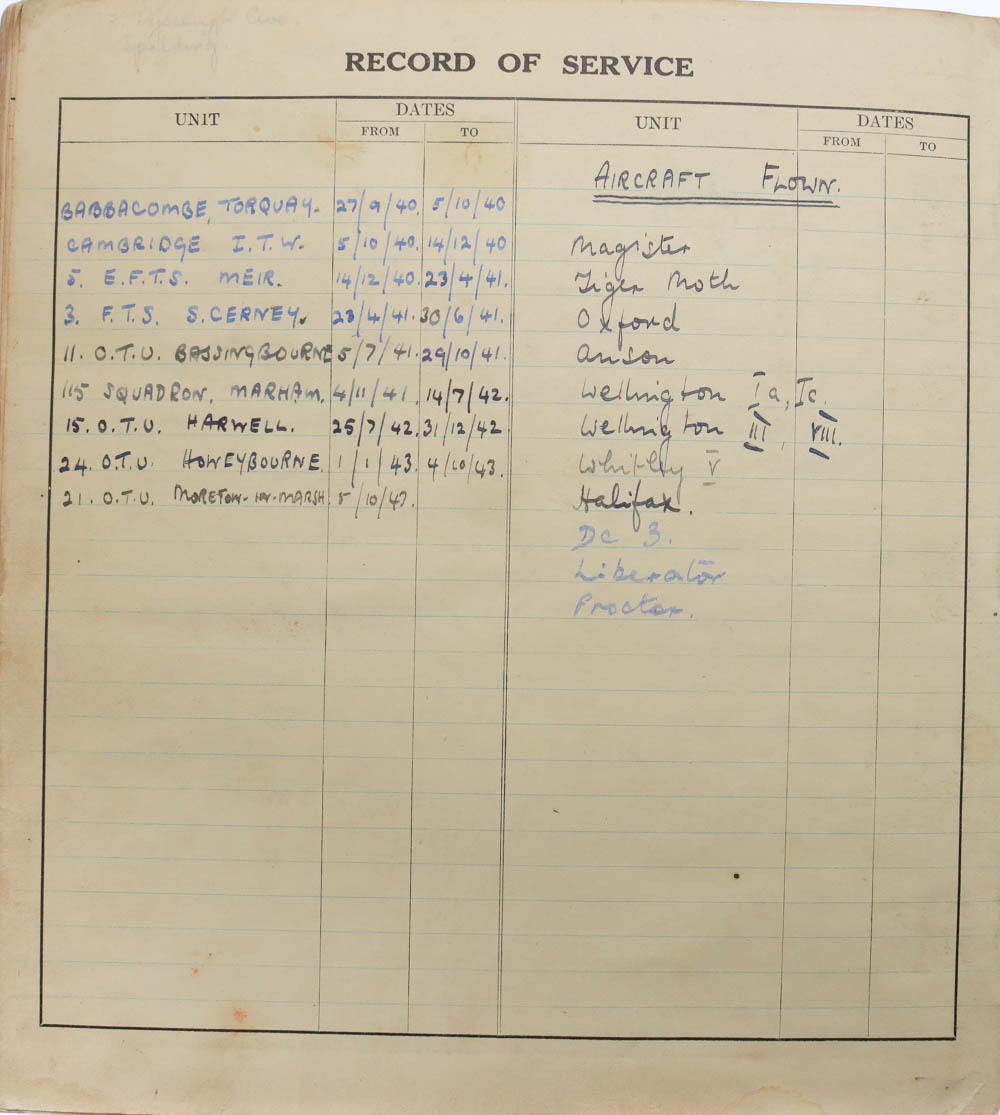 Spalding.
RECORD OF SERVICE
UNIT DATES FROM TO
BABBACOMBE, TORQUAY. 27/9/40. 5/10/40
CAMBRIDGE I.T.W. 5/10/40. 14/12/40
5. E.F.T.S. MEIR. 14/12/40. 23/4/41.
3. F.T.S. S. CERNEY. 23/4/41. 30/6/41.
11. O.T.U. BASSINGBOURNE 5/7/41. 29/10/41.
115 SQUADRON, MARHAM. 4/11/41. 14/7/42.
15. O.T.U. HARWELL. 25/7/42. 31/12/42
24. O.T.U. HONEYBOURNE. 1/1/43. 4/10/43.
21. O.T.U. MORETON-IN-MARSH. 5/10/43.
UNIT DATES FROM TO
AIRCRAFT FLOWN.
Magister
Tiger Moth
Oxford
Anson
Wellington Ia, Ic.
Wellington III, VIII.
Whitley V
Halifax.
Dc 3.
Liberator
Proctor.